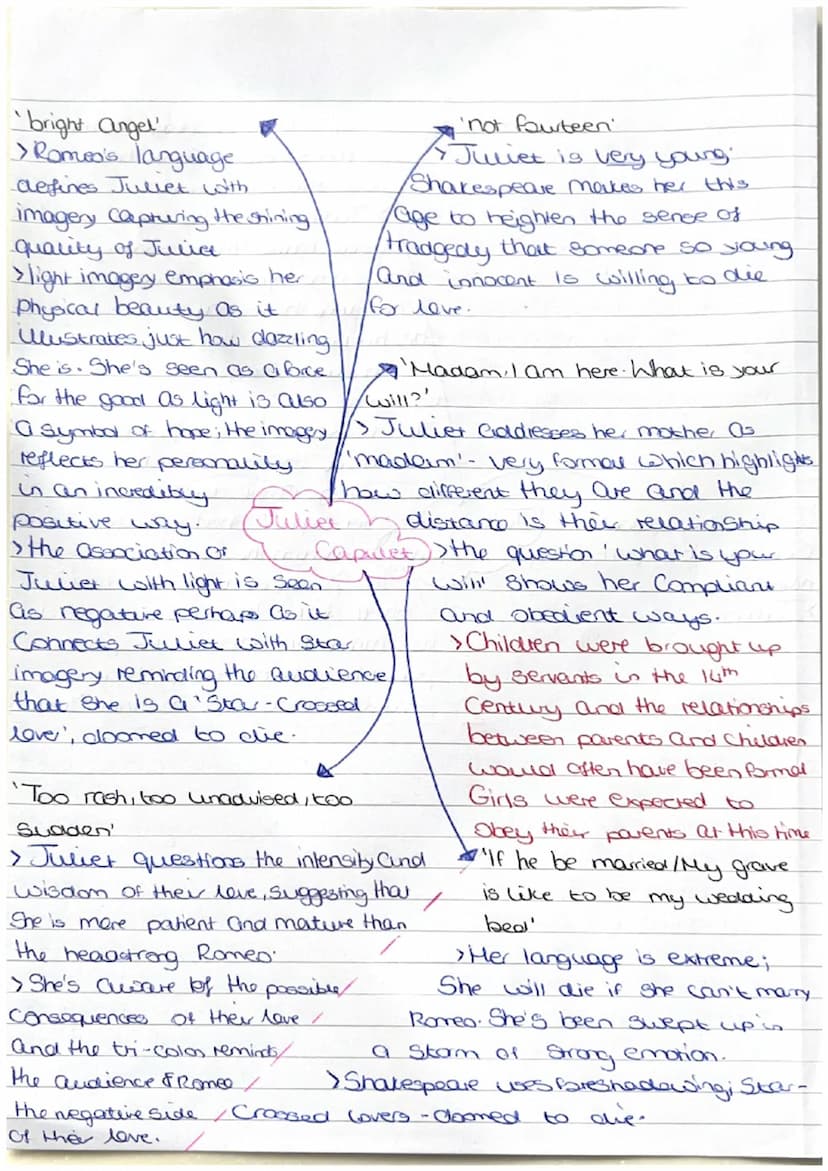 'bright angel'
>Romeo's language
defines Juliet with
imagery capturing the shining
quality of Juliet
>light imagery emphasis her
physical beauty as it
illustrates just how dazzling
She is. She's seen as a force
for the good as light is also
a symbol of hope; the imagery
reflects her personality
in an incredibly
positive way.
>the association of
Juliet with light is seen
as negative perhaps as it
Connects Juliet with Star
imagery reminding the audience
that she is a 'Star-Crossed
love', doomed to die.
'not fourteen'
>Juliet is very young.
Shakespeare makes her this
age to heighten the sense of
tradgedy that someone so young
and innocent is willing to die
for love.
'Madam, I am here. What is your
will?'
> Juliet addresses her mother as
'madam' - very formal which highlights
how different they are and the
distance is their relationship
>the question 'what is your
will' shows her compliant
and obedient ways.
>Children were brought up
by servants in the 14th
Century and the relationships
between parents and children
would often have been formal
Girls were expected to
obey their parents at this time
Juliet
Capulet
'Too rash, too unadvised, too
sudden'
> Juliet questions the intensity and
wisdom of their love, suggesting that
She is more patient and mature than
the headstrong Romeo.
>She's aware of the possible
consequences of their love
and the tri-colon reminds
the audience & Romeo
the negative side
of their love.
'If he be married/My grave
is like to be my wedding
bed'
>Her language is extreme;
She will die if she can't marry
Romeo. She's been swept up in
a storm of strong emotion.
>Shakespeare uses foreshadowing; Star-
Crossed lovers - doomed to die.